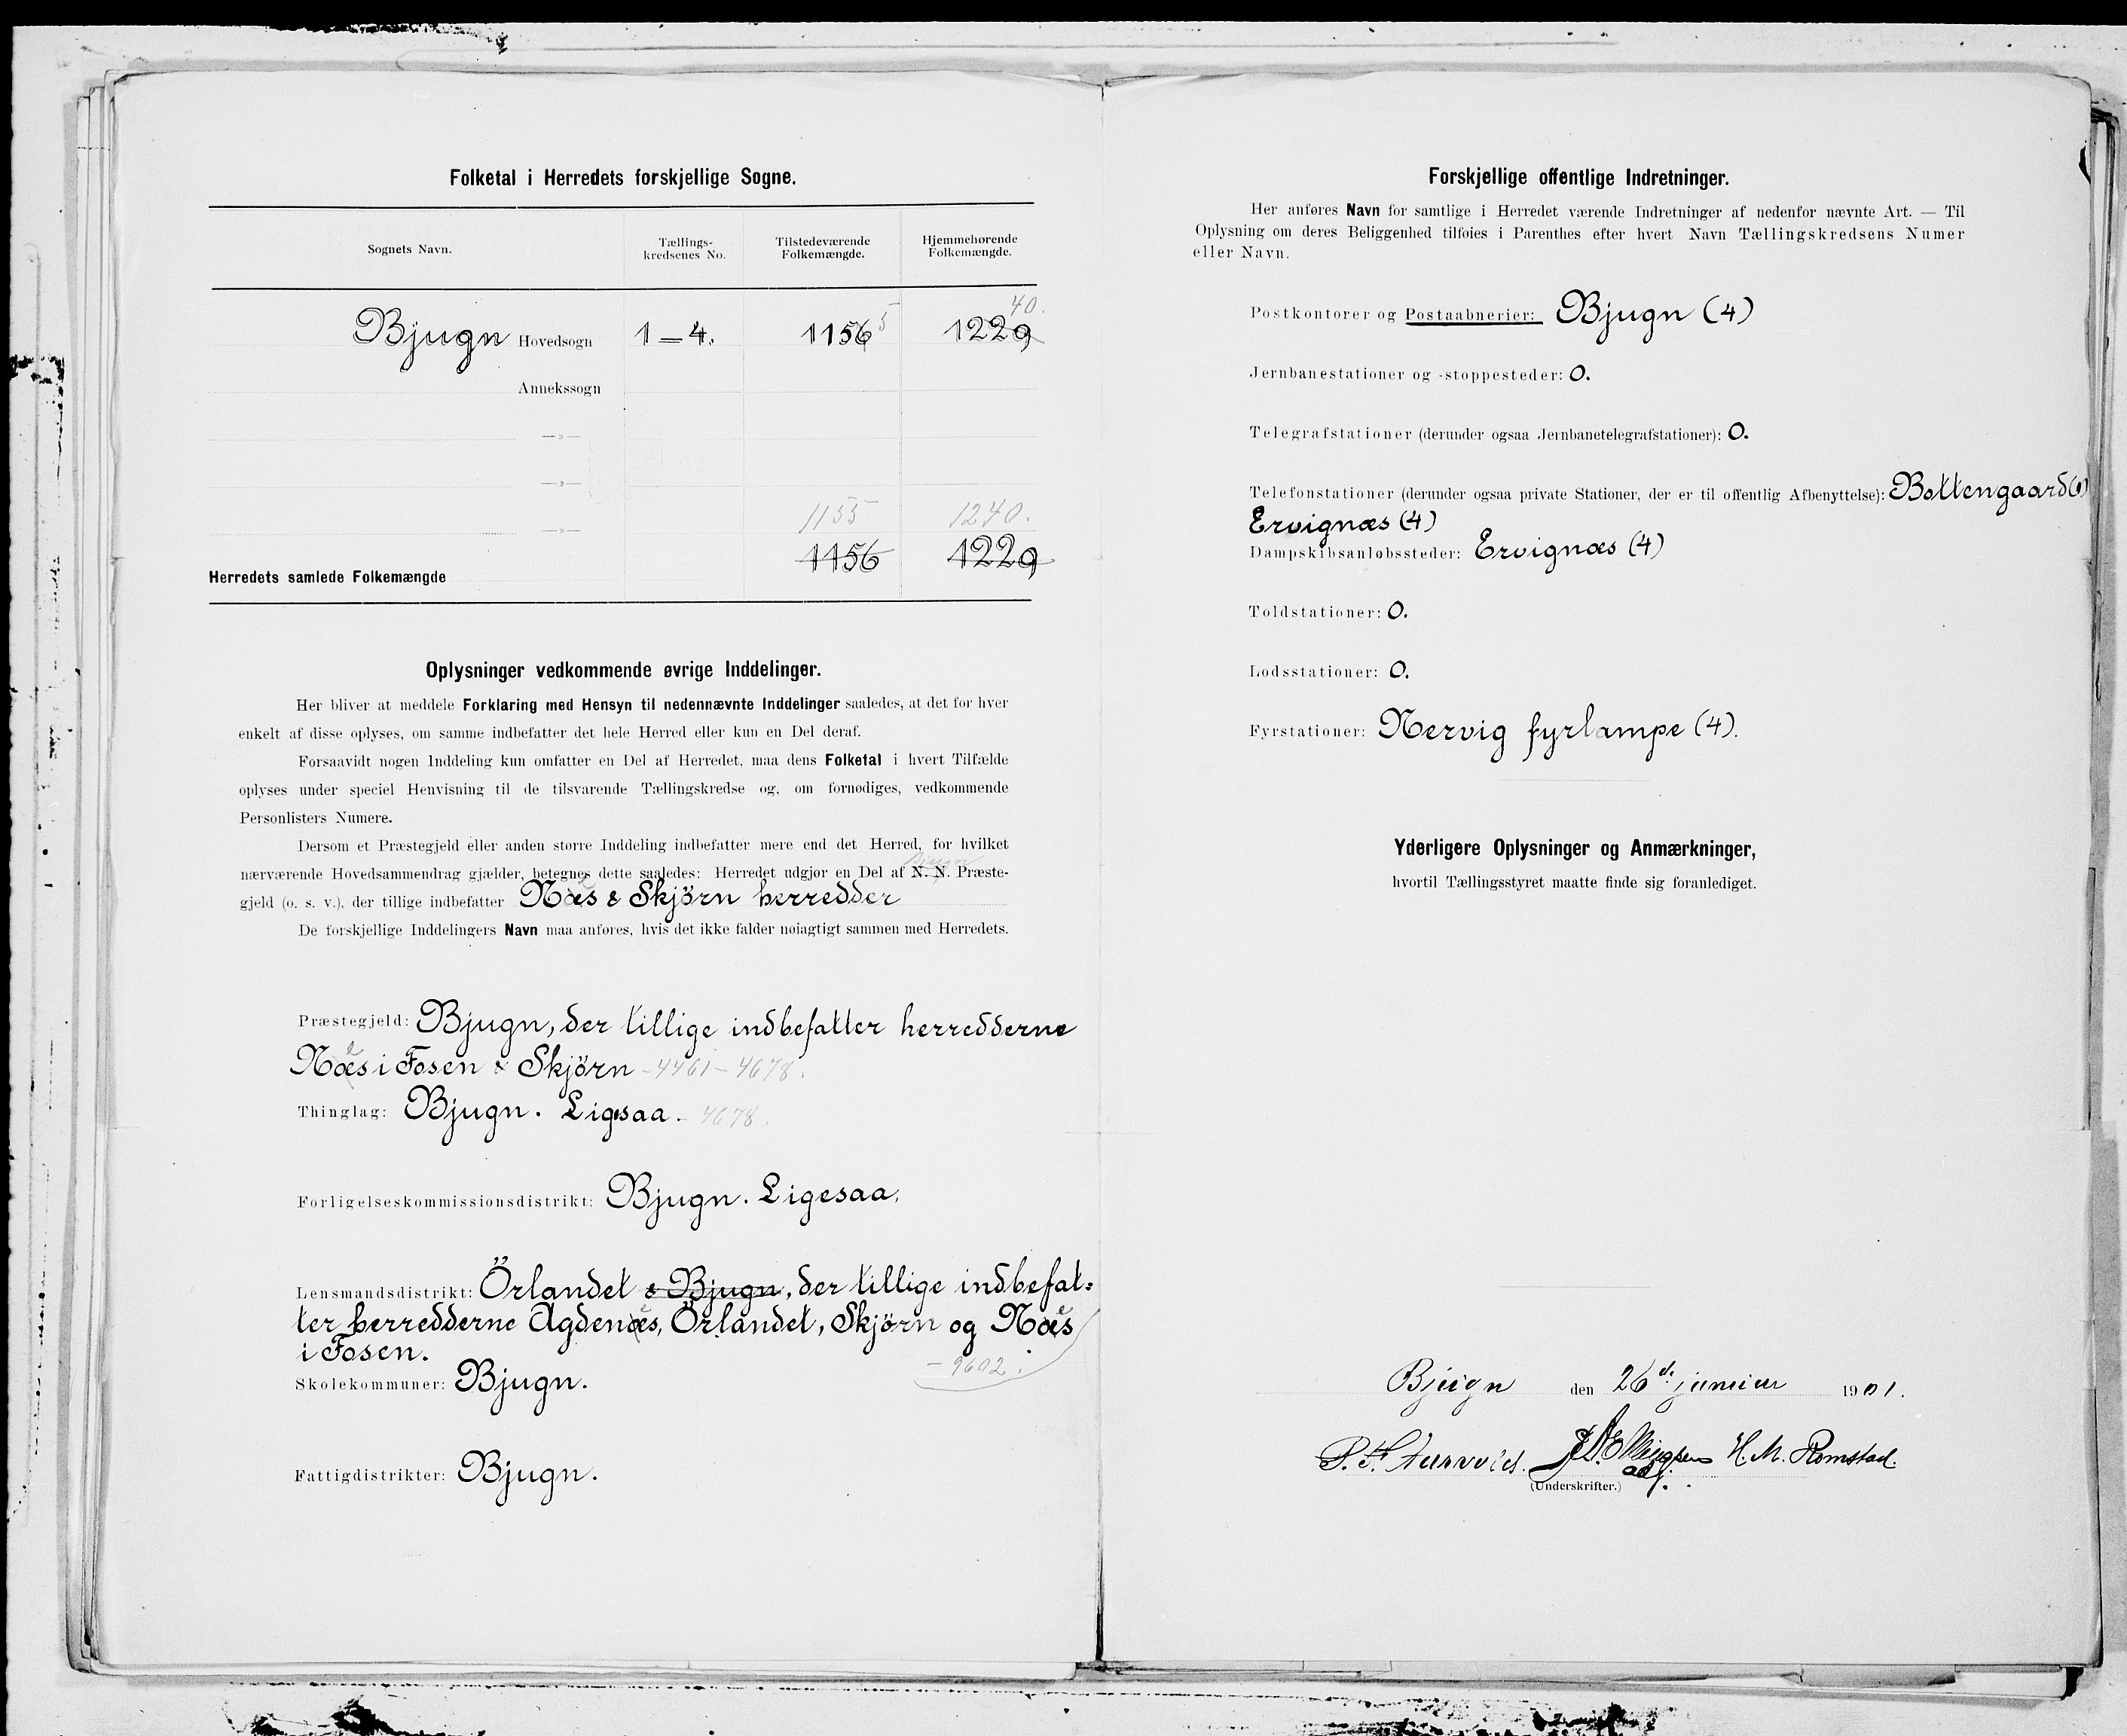 Folketal i Herredets forskjellige Sogne.
Sognets Navn. Tællings-kredsenes No. Tilstedeværende Folkemængde. Hjemmehørende Folkemængde.
40.
Bjugn Hovedsogn 1—4. 1156 5 1229
Annekssogn
—»—
—»—
1155 1240.
—»—
1156 1229
Herredets samlede Folkemængde
Oplysninger vedkommende øvrige Inddelinger.
Her bliver at meddele Forklaring med Hensyn til nedennævnte Inddelinger saaledes, at det for hver
enkelt af disse oplyses, om samme indbefatter det hele Herred eller kun en Del deraf.
Forsaavidt nogen Inddeling kun omfatter en Del af Herredet, maa dens Folketal i hvert Tilfælde
oplyses under speciel Henvisning til de tilsvarende Tællingskredse og, om fornødiges, vedkommende
Personlisters Numere.
Dersom et Præstegjeld eller anden større Inddeling indbefatter mere end det Herred, for hvilket
Bjugn
nærværende Hovedsammendrag gjælder, betegnes dette saaledes: Herredet udgjør en Del af N. N. Præste-
gjeld (o. s. v.), der tillige indbefatter Næs & Skjörn herredder
De forskjellige Inddelingers Navn maa anføres, hvis det ikke falder nøiagtigt sammen med Herredets.
Præstegjeld: Bjugn, der tillige indbefatter herredderne
Næs i Fosen & Skjörn – 4461 – 4678.
Thinglag: Bjugn. Ligsaa. – 4678.
Forligelseskommissionsdistrikt: Bjugn. Ligesaa.
Lensmandsdistrikt: Örlandet & Bjugn, der tillige indbefat-
ter herredderne Agdenæs, Örlandet, Skjörn og Næs
i Fosen.
– 9602.
Skolekommuner: Bjugn.
Fattigdistrikter: Bjugn.
Forskjellige offentlige Indretninger.
Her anføres Navn for samtlige i Herredet værende Indretninger af nedenfor nævnte Art. — Til
Oplysning om deres Beliggenhed tilføies i Parenthes efter hvert Navn Tællingskredsens Numer
eller Navn.
Postkontorer og Postaabnerier: Bjugn (4)
Jernbanestationer og -stoppesteder: 0.
Telegrafstationer (derunder ogsaa Jernbanetelegrafstationer): 0.
Telefonstationer (derunder ogsaa private Stationer, der er til offentlig Afbenyttelse): Bottengaard
Ervignæs (4)
Dampskibsanløbssteder: Ervignæs (4)
Toldstationer: 0.
Lodsstationer: 0.
Fyrstationer: Nervig fyrlampe (4).
Yderligere Oplysninger og Anmærkninger,
hvortil Tællingsstyret maatte finde sig foranlediget.
Bjugn den 26de januar 1901.
H. M. Romstad.
(Underskrifter.)